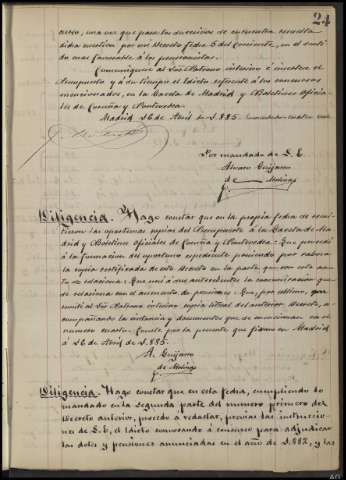 24
caso, una vez que para la direccion se encuentra resuelta
dicha cuestion por mi Decreto fecha 5 del Corriente, en el senti-
do mas favorable á los pensionistas.
Comuniquese al Sor Patrono interino é insertese el
Presupuesto y á su tiempo el Edicto referente á los concursos
mencionados, en la Gaceta de Madrid y Boletines Oficia-
les de Coruña y Pontevedra.
Madrid 26 de Abril de 1.885.
Por mandado de S. E.
Alvaro Guijarro
de Molinas
Diligencia. Hago constar que en la propia fecha se remi-
tieron las oportunas copias del Presupuesto á la Gaceta de Ma-
drid y Boletines oficiales de Coruña y Pontevedra: Que procedí
á la formacion del oportuno espediente poniendo por cabeza
la copia certificada de este Decreto en la parte que con este asun-
to se relaciona: Que uní á sus antecedentes la comunicacion que
se relaciona con el aumento de pensiones: Que, por último, que
remití al Sor Patrono interino copia literal del anterior Decreto, a-
compañando la instancia y documentos que se mencionan en el
numero cuarto. Conste por la presente que firmo en Madrid
á 26 de Abril de 1.885.
A. Guijarro
de Molinas
Diligencia. Hago constar que en esta fecha, cumpliendo lo
mandado en la segunda parte del numero primero del
Decreto anterior, procedo á redactar, previas las instruccio-
nes de S. E., el Edicto convocando á concurso para adjudicar
las dotes y pensiones anunciadas en el año de 1.882, y las